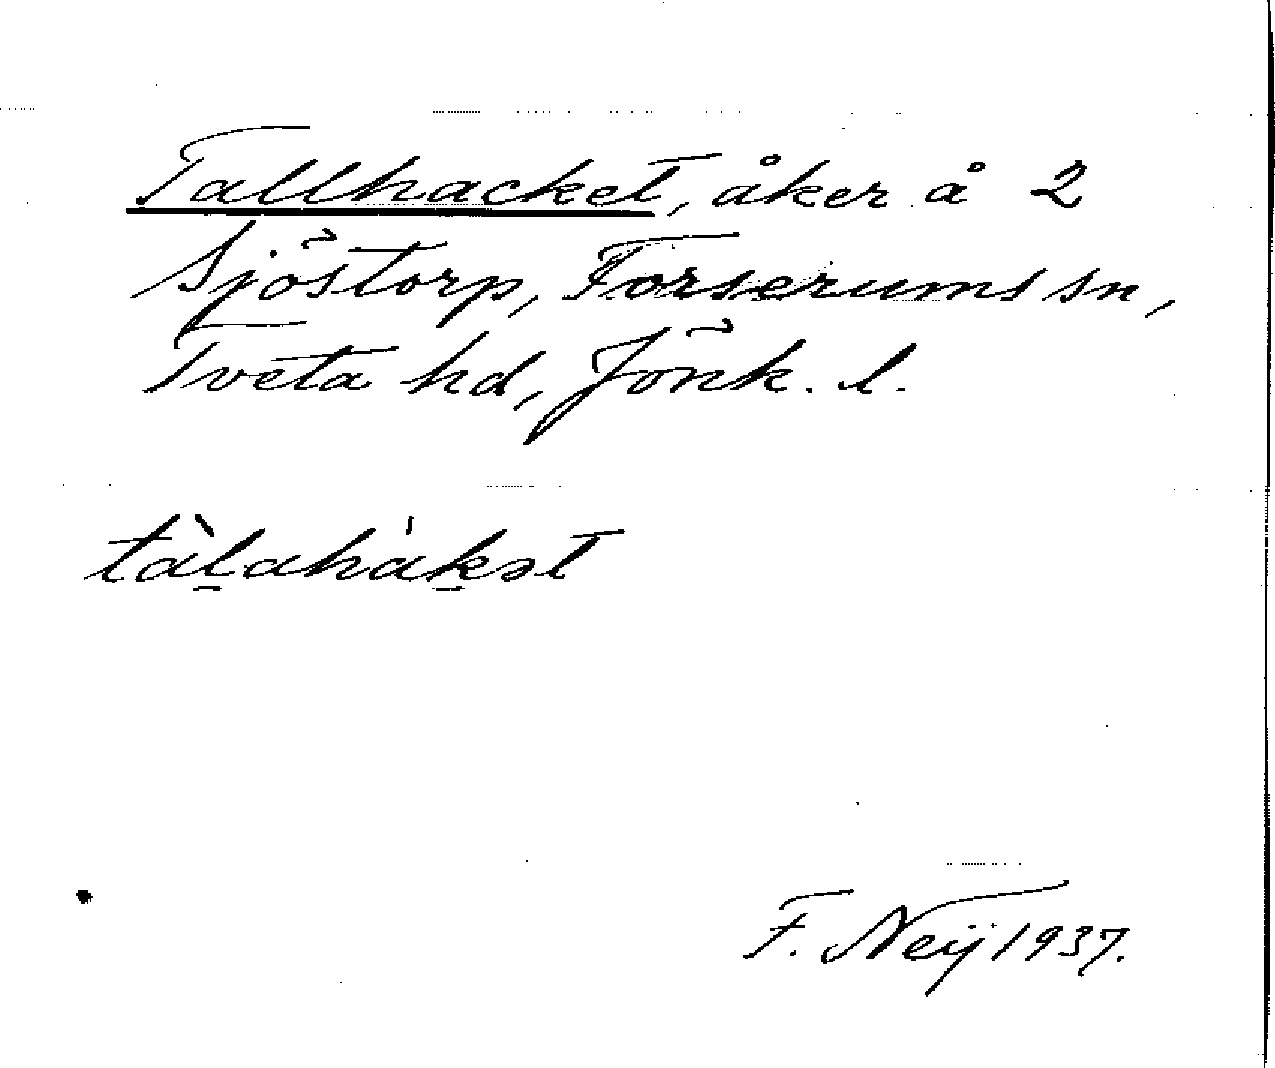 Tallhacket, åker å 2
Sjöstorp, Forserums sn,
Tveta hd, Jönk. l.
tàl̲ahák̲ət
F. Neij 1937.